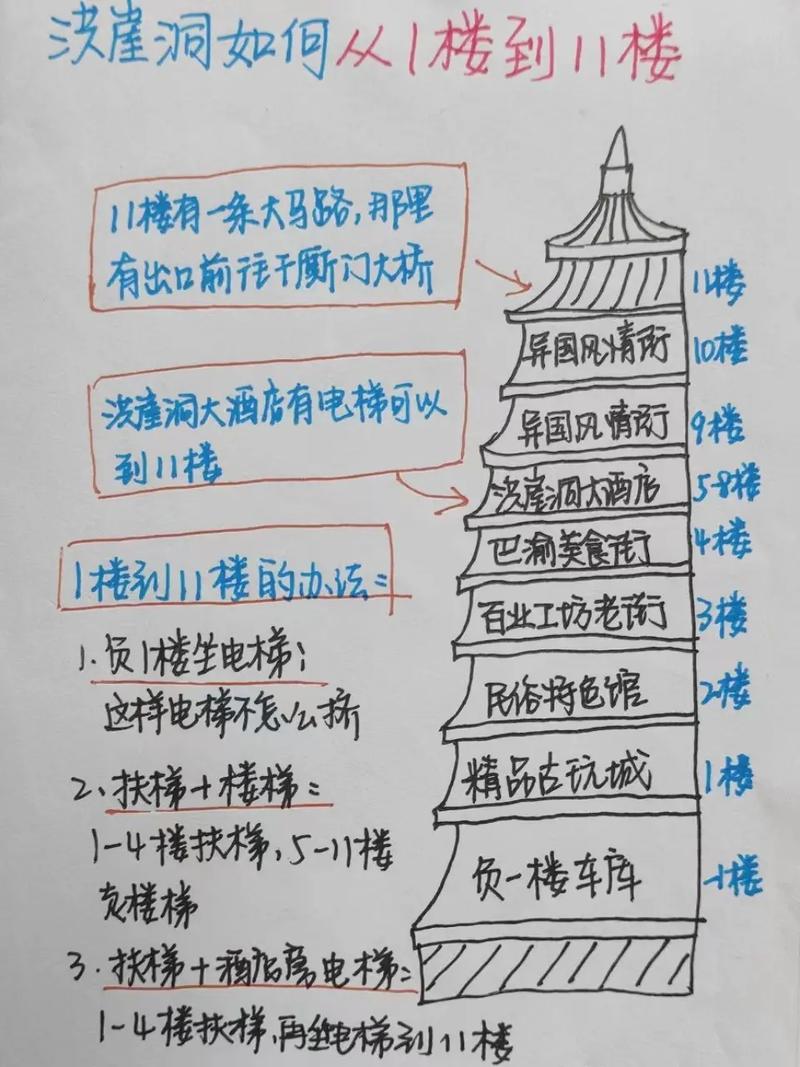 洪崖洞如何从1楼到11楼
11楼有一条大马路,那里
有出口前往千厮门大桥
洪崖洞大酒店有电梯可以
到11楼
1楼到11楼的办法:
1.负1楼坐电梯:
这样电梯不怎么挤
2、扶梯+楼梯:
1-4楼扶梯,5-11楼
爬楼梯
3.扶梯+酒店电梯:
1-4楼扶梯,再坐电梯到11楼
11楼
异国风情街 10楼
异国风情街 9楼
洪崖洞大酒店 5-8楼
巴渝美食街 4楼
百业工坊老街 3楼
民俗特色馆 2楼
精品古玩城 1楼
负一楼车库 -1楼